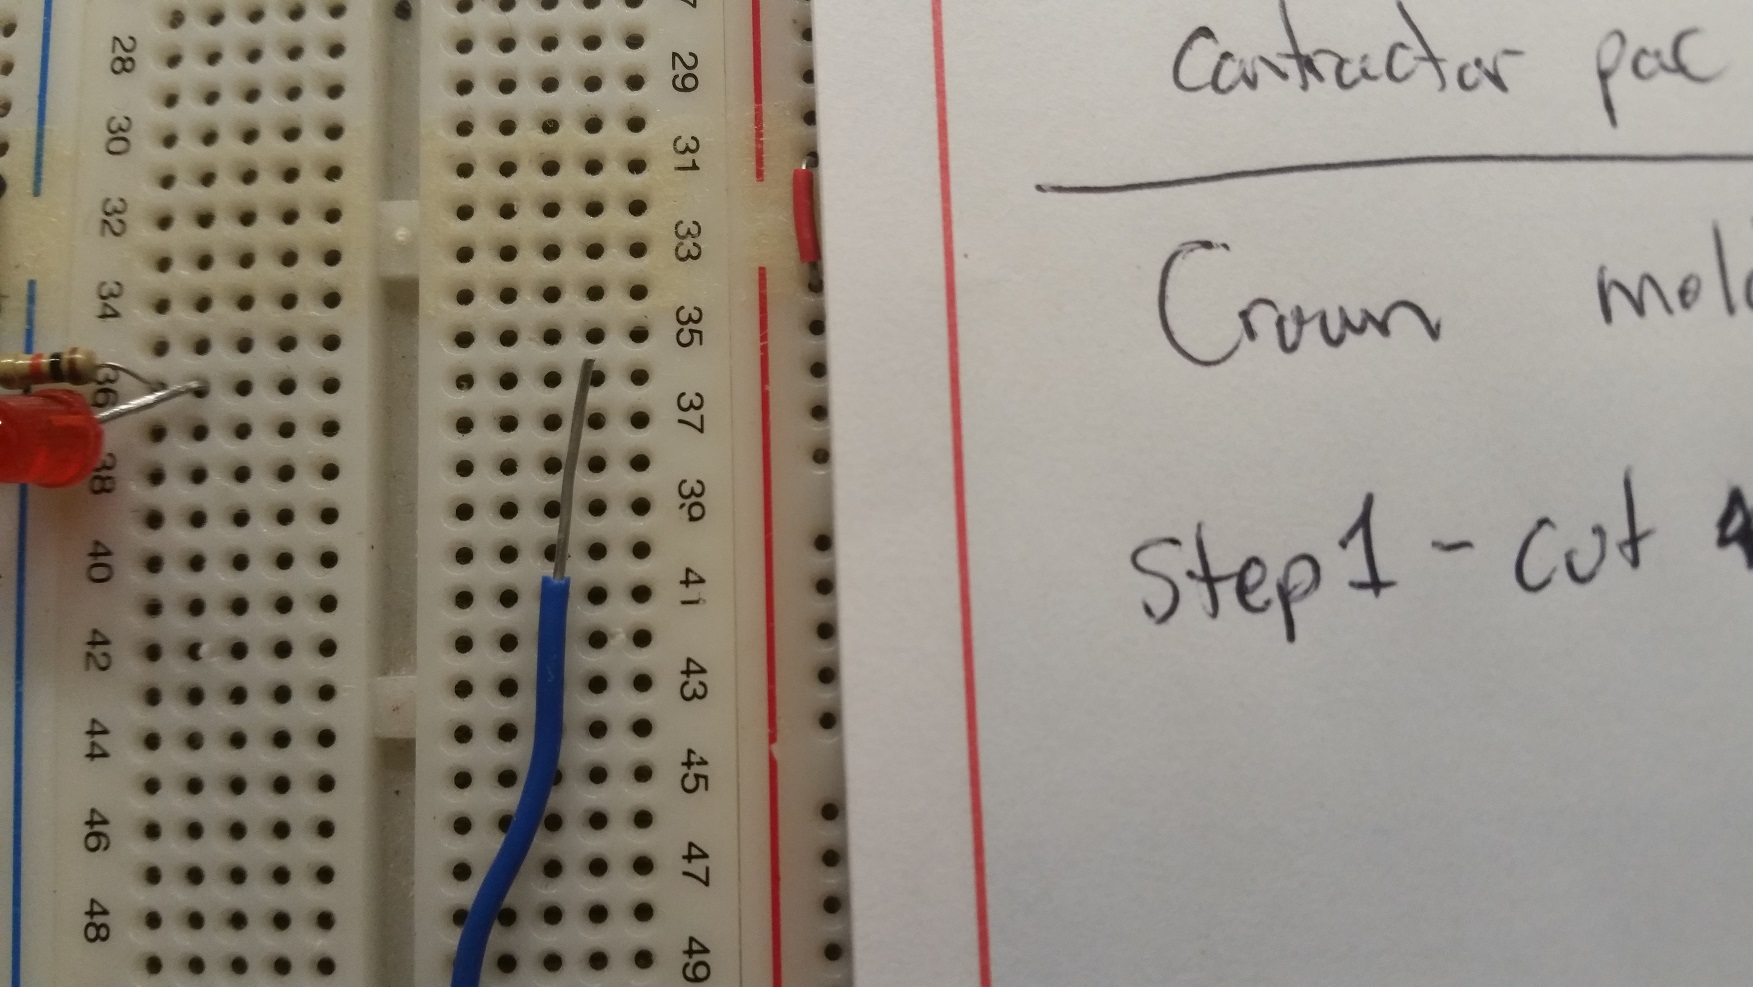 28
30
32
34
36
38
40
42
44
46
48
29
31
33
35
37
39
41
43
45
47
49
Contractor pac
Crown mol
Step 1 - cut